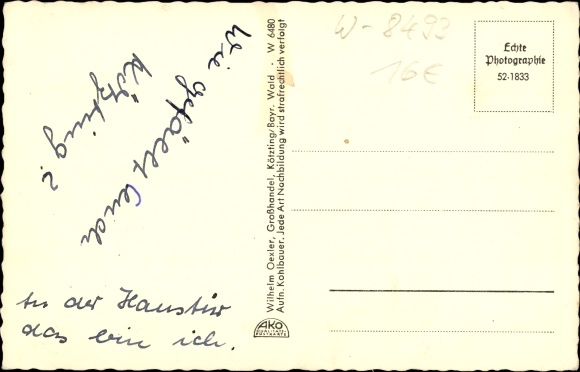 Wie gefällt Euch
Kötzting?
An der Haustür
das bin ich.
Wilhelm Oexler, Großhandel, Kötzting/Bayr. Wald · W 6480
Aufn. Kohlbauer. Jede Art Nachbildung wird strafrechtlich verfolgt
AKO
QUALITÄTS-
POSTKARTE
W-8493
16€
Echte
Photographie
52-1833